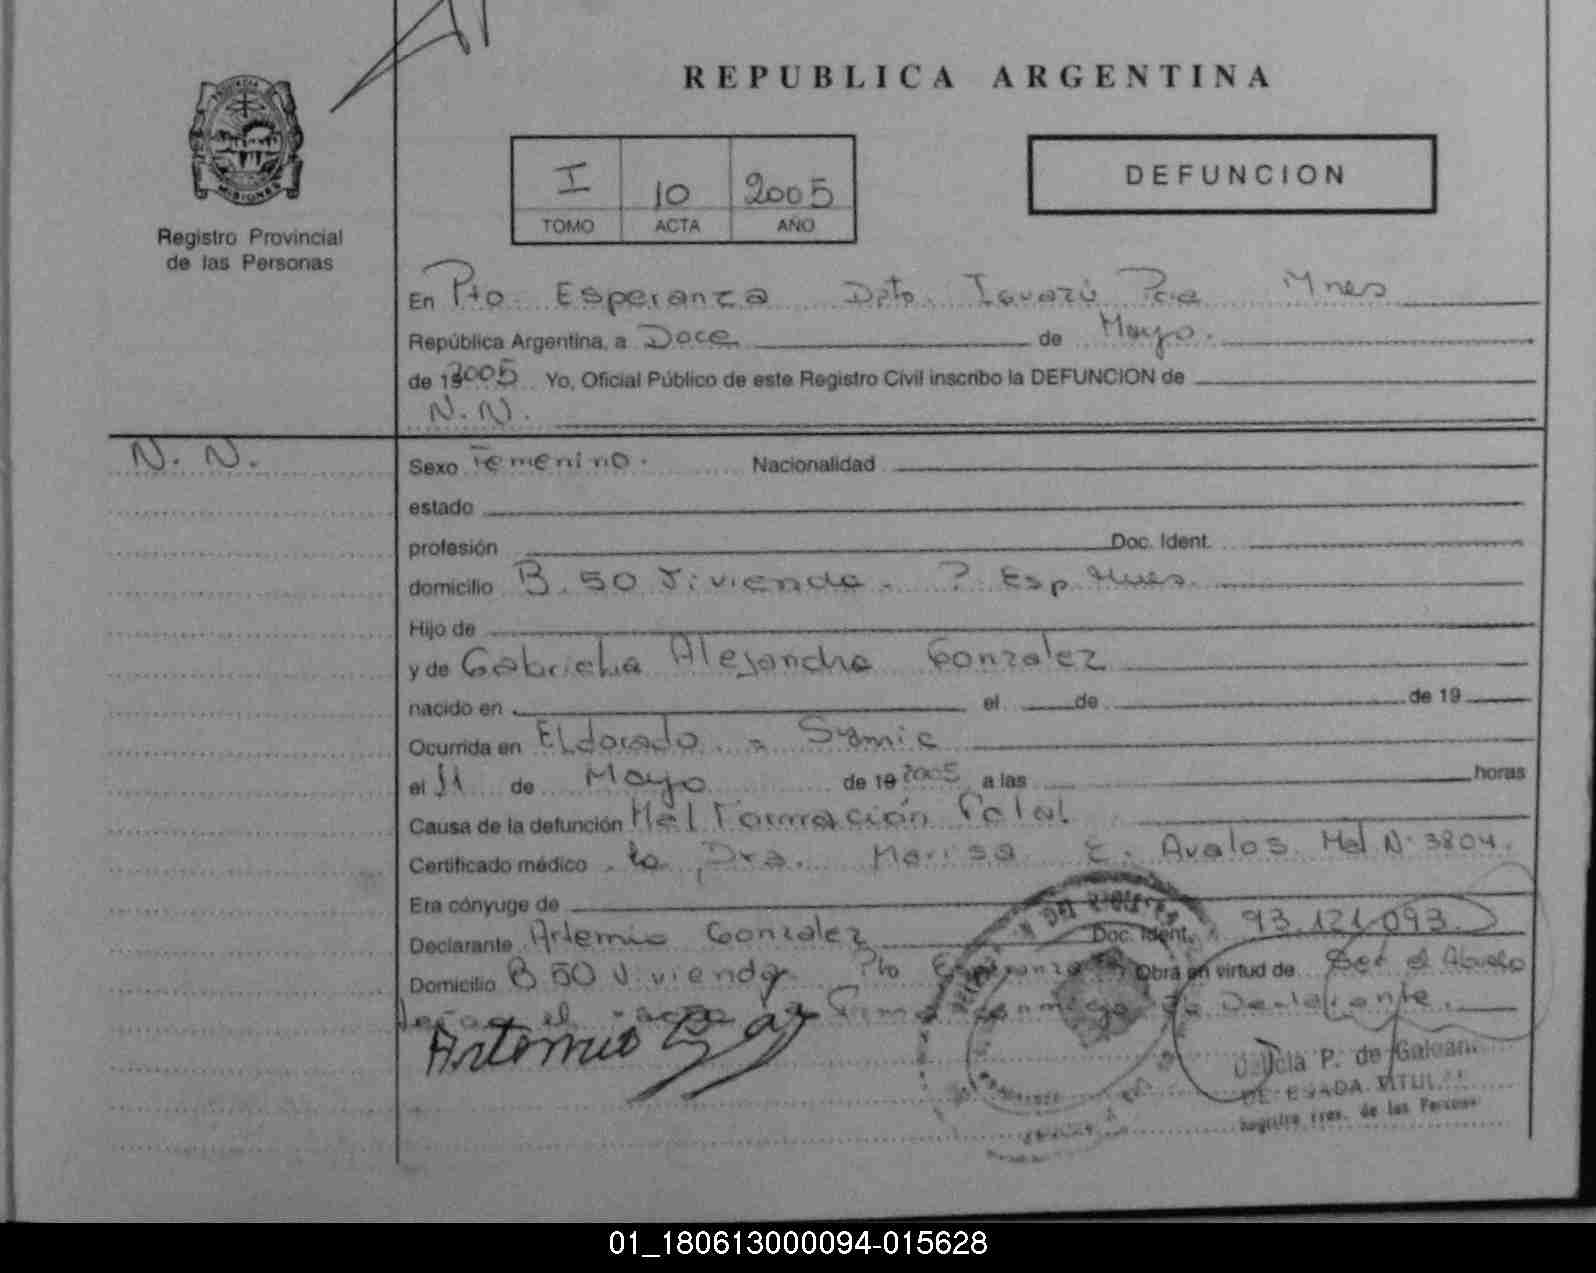 REPUBLICA ARGENTINA
MISIONES
Registro Provincial
de las Personas
I 10 2005
TOMO ACTA AÑO
DEFUNCION
En Pto. Esperanza Dpto. Iguazú Pcia Mnes
República Argentina, a Doce de Mayo.
de 19 2005 Yo, Oficial Público de este Registro Civil inscribo la DEFUNCION de
N. N.
N. N.
Sexo Femenino. Nacionalidad
estado
profesión Doc. Ident.
domicilio B. 50 Vivienda. P. Esp. Mnes.
Hijo de
y de Gabriela Alejandra Gonzalez
nacido en el de de 19
Ocurrida en Eldorado - Samic
el 11 de Mayo de 19 2005 a las horas
Causa de la defunción Mal Formación Fetal
Certificado médico la Dra. Marisa E. Avalos Mat N. 3804.
Era cónyuge de
Declarante Artemio Gonzalez Doc. Ident. 93.121.093.
Domicilio B 50 Vivienda Pto Esperanza Obra en virtud de Ser el Abuelo
el Firma conmigo el Declarante.
Artemio
P. de Galeano
TITULAR
Registro Prov. de las Personas
01_180613000094-015628